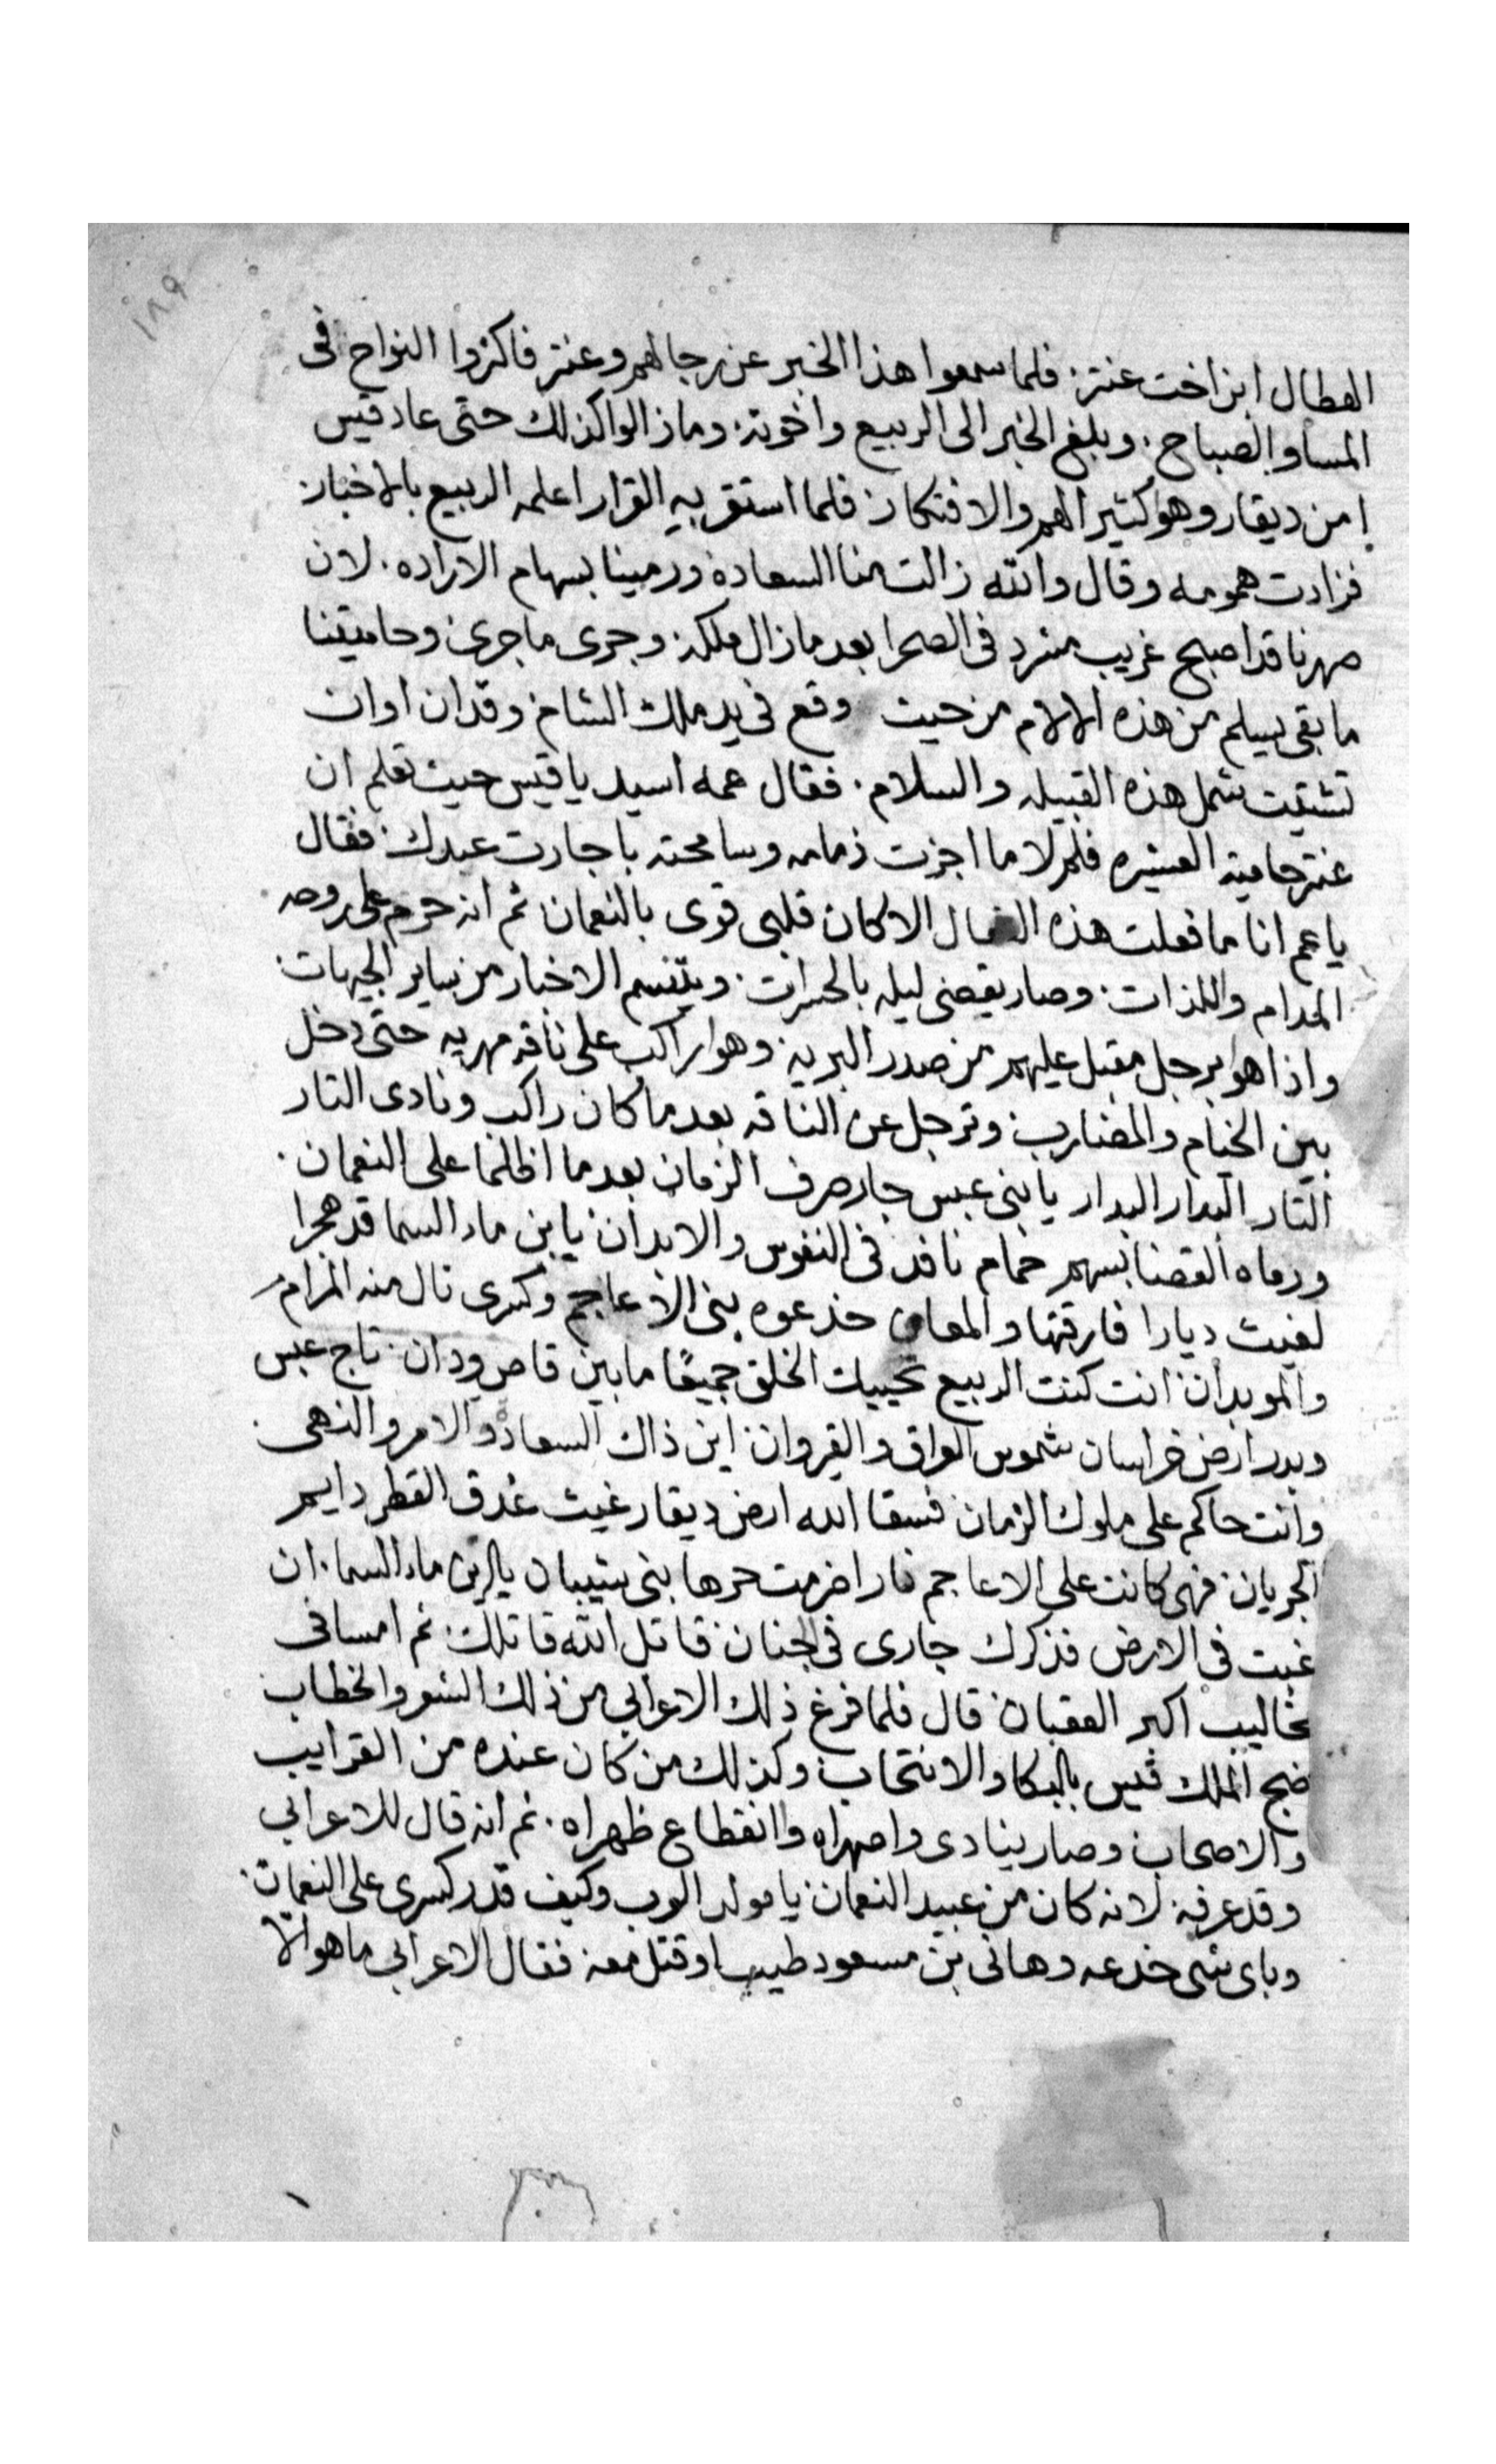 ١٨٩
الهطال ابن اخت عنتر: فلما سمعوا هذا الخبر عن رجالهم وعنتر فاكثروا النواح فى
المسا والصباح: وبلغ الخبر الى الربيع واخوته: وما زالوا كذلك حتى عاد قيس
من ديقار وهو كثير الهم والافتكار: فلما استقر به القرار اعلمه الربيع بالاخبار:
فزادت همومه وقال والله زالت منا السعاده ورمينا بسهام الاراده. لان
صهرنا قد اصبح غريب مشرد فى الصحرا بعد ما زال ملكه: وجرى ما جرى: وحاميتنا
ما بقى يسلم من هذه الالام من حيث وقع فى يد ملك الشام: وقد ان اوان
تشتيت شمل هذه القبيله والسلام. فقال عمه اسيد يا قيس حيث تعلم ان
عنتر حامية العشيره فلم لا ما اجزت ذمامه وسامحته باجارت عبدك: فقال
يا عم انا ما فعلت هذه الفعال الا كان قلبى قوى بالنعمان: ثم انه حرم على روحه
المدام واللذات: وصار يقضى ليله بالحسرات: ويتنسم الاخبار من ساير الجيهات:
واذا هوا برجل مقبل عليهم من صدر البريه: وهوا راكب على ناقه مهريه حتى دخل
بين الخيام والمضارب: وترجل عن الناقه بعد ما كان راكب ونادى التار
التار البدار البدار يا بنى عبس جار صرف الزمان بعد ما اظلما على النعمان:
ورماه القضا بسهم حمام نافد فى النفوس والابدان: يا بن ماء السما قد هجرا
لغيث ديارا فارقتها والمعانى خدعوه بنى الاعاجم وكسرى نال منه المرام
والموبدان: انت كنت الربيع تحييك الخلق جميعًا ما بين قاص ودان: تاج عبس
وبدر ارض خراسان شموس العراق والقيروان: اين ذاك السعاده والامر والنهى:
وانت حاكم على ملوك الزمان: فسقا الله ارض ديقار غيث غدق القطر دايم
الجريان: فهى كانت على الاعاجم نارا ضرمت حرها بنى شيبان يا بن ماء السما: ان
غبت فى الارض فذكرك جارى فى الجنان: قاتل الله قاتلك: ثم امسا فى
مخاليب اكبر العقبان: قال فلما فرغ ذلك الاعرابى من ذلك الشعر والخطاب
ضج الملك قيس بالبكا والانتحاب: وكذلك من كان عنده من القرايب
والاصحاب: وصار ينادى واصهراه وانقطاع ظهراه: ثم انه قال للاعرابى
وقد عرفه: لانه كان من عبيد النعمان: يا مولد العرب وكيف قدر كسرى على النعمان:
وباى شى خدعه وهانى بن مسعود طيب او قتل معه: فقال الاعرابى ما هو الا